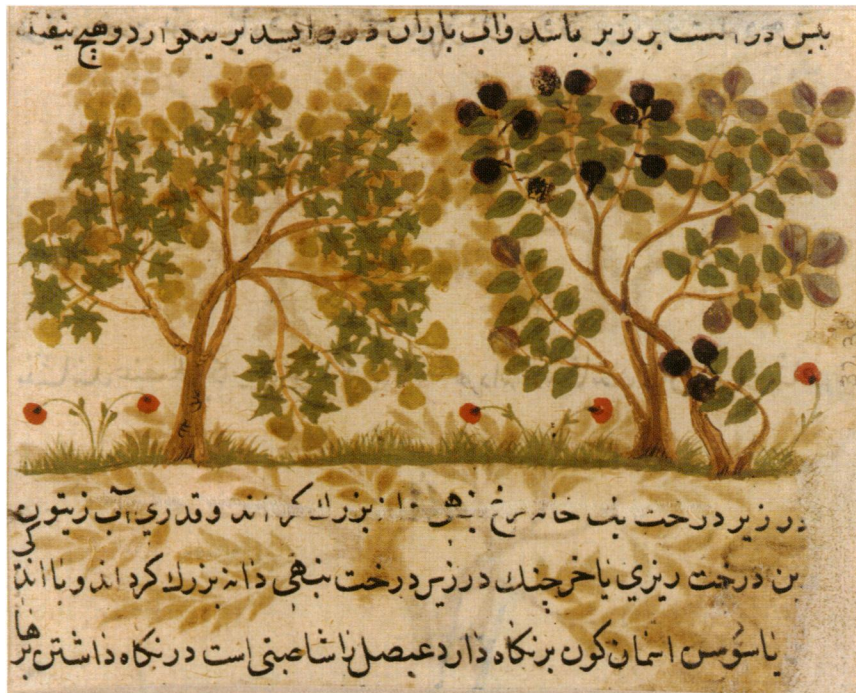 بیش درخت بر زبر باشد و آب باران در و ایستد بر نیکو آرد و هیچ نیفتد
در زیر درخت بنب خانه مرغ بنهی دانه بزرك كرداند و قدري آب زیتون كی
بن درخت ریزي یا خرچنك در زیر درخت بنهی دانه بزرك كرداند و با اند
یا سوسن اسمان كون بر نكاه دارد عنصل را خاصیتی است در نكاه داشتن برها